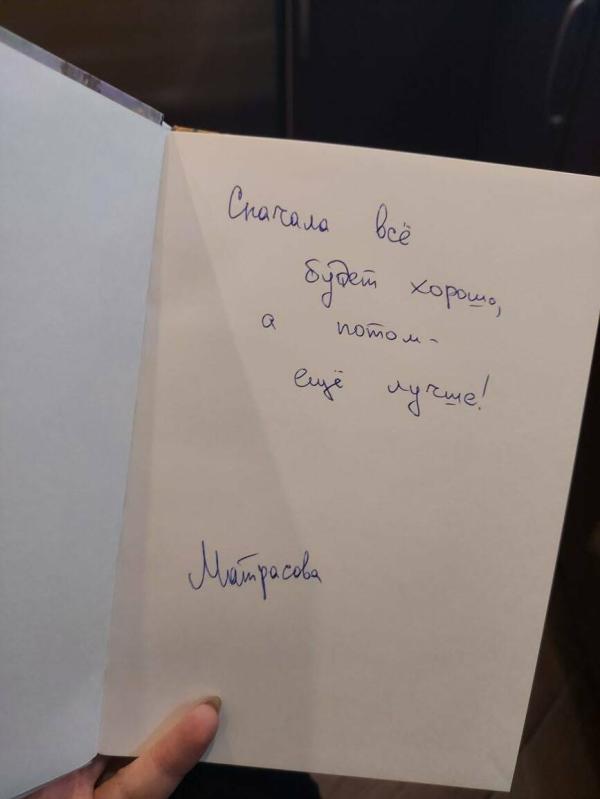 Сначала всё
будет хорошо,
а потом-
ещё лучше!
Матрасова